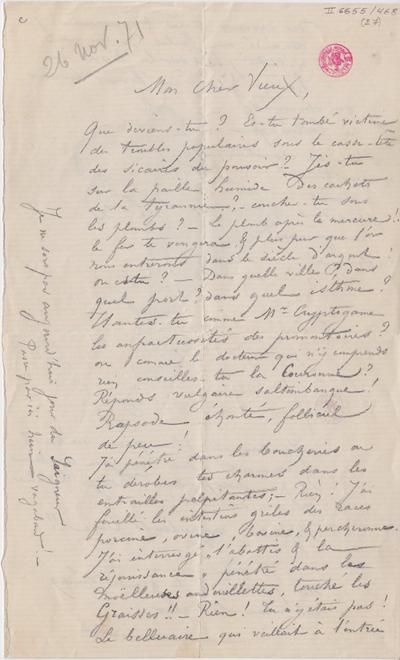 II 6655/468
(27)
26 nov. 71
Mon Cher Vieux,
Que deviens-tu ? Es-tu tombé victime
des troubles populaires sous le casse-tête
des sicaires du pouvoir ? Gis-tu
sur la paille humide des cachots
de la tyrannie ? – couches-tu sous
les plombs ? – le plomb après le mercure !!
le fer te vengera & plus pur que l'or
nous entrerons dans le siècle d'argent !
où es-tu ? – Dans quelle ville ? dans
quel port ? dans quel isthme ?
Hantes-tu comme Mr Cryptogame
les anfractuosités des promontoires ?
ou comme le docteur qui n'y comprends
rien conseilles-tu la Couronne ?
Réponds vulgaire saltimbanque !
Rapsode éhonté, follicule
de peu !
J'ai pénétré dans les boucheries où
tu dérobes tes charmes dans les
entrailles palpitantes ; – Rien ! J'ai
fouillé les intestins grêles des races
porcine, ovine, bovine, & percheronne.
J'ai interrogé l'abattis & la
réjouissance, pénétré dans les
moëlleuses andouillettes, touché les
Graisses !! – Rien ! Tu n'y étais pas !
Le belluaire qui veillait à l'entrée
Je ne sors pas aujourd'hui jour du Seigneur
Passe par ici vagabond ! –